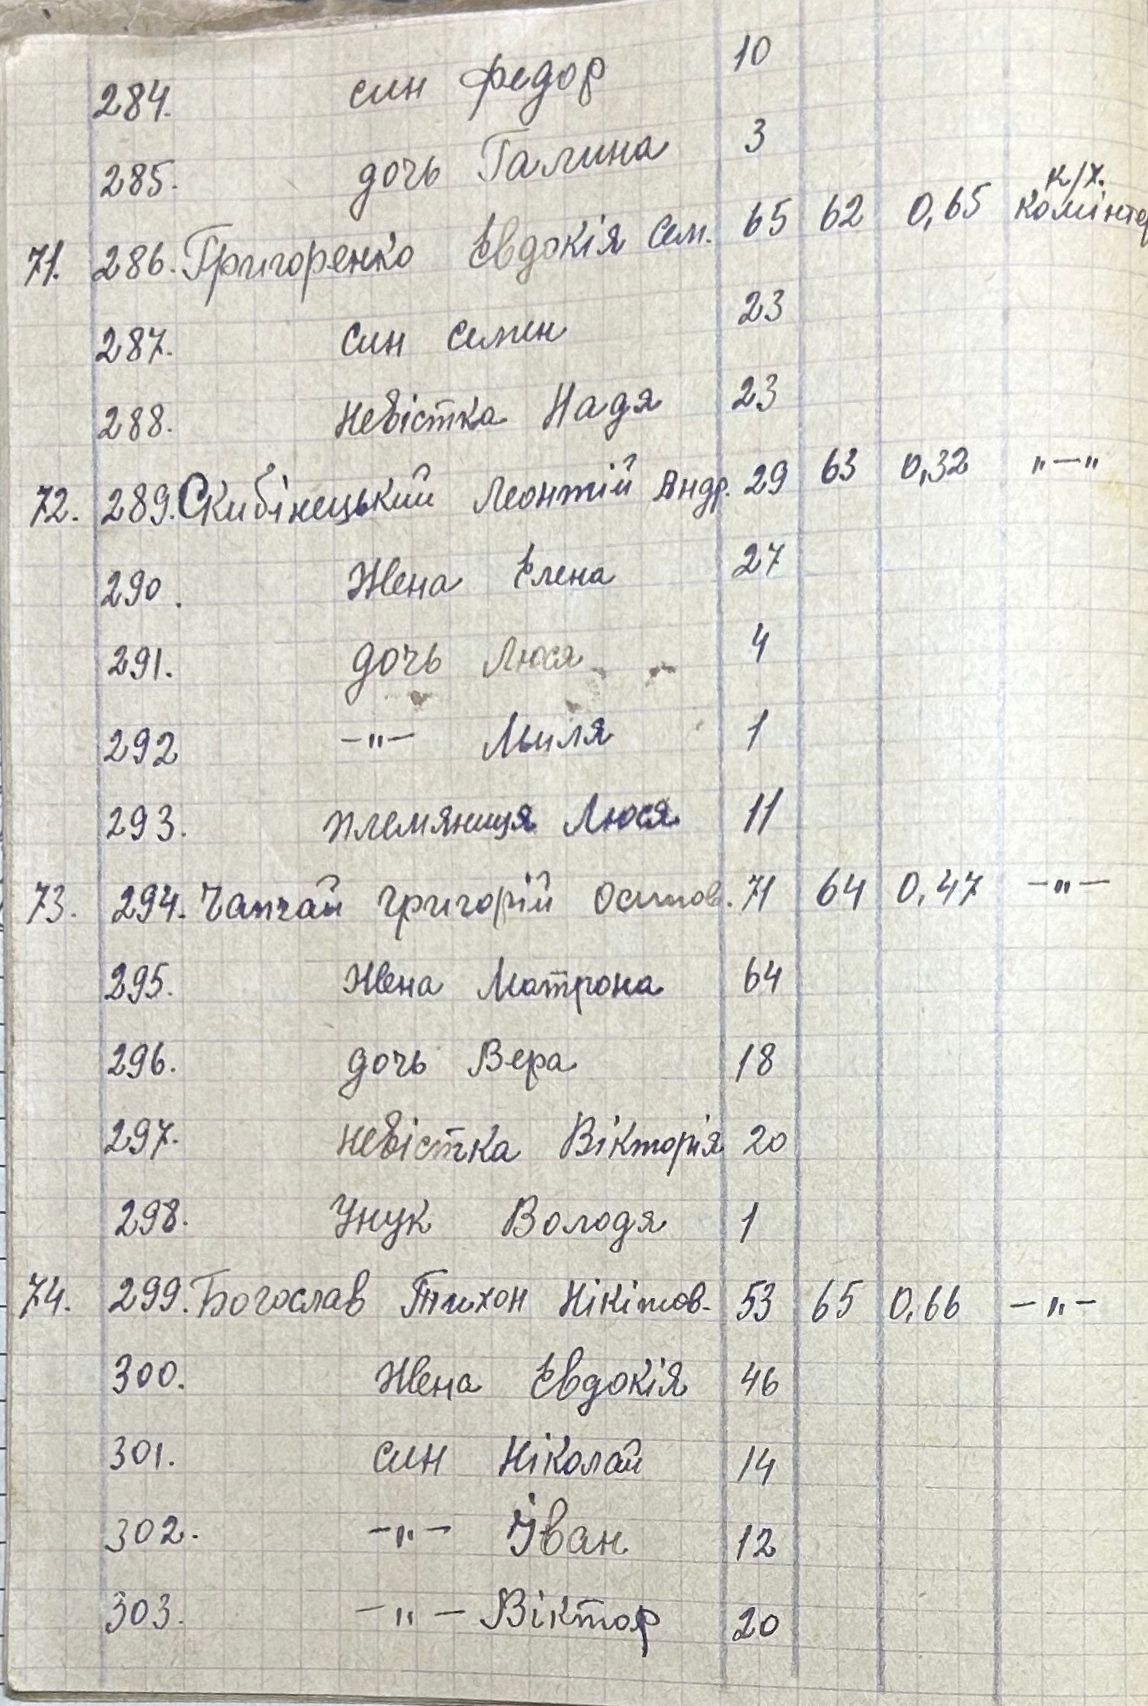 284. син Федор 10
285. дочь Галина 3
к/х.
71. 286. Григоренко Евдокія Сем. 65 62 0,65 Комінтер
287. син Семен 23
288. невістка Надя 23
72. 289. Скибінецький Леонтій Андр. 29 63 0,32 "—"
290. Жена Елена 27
291. дочь Люся 4
292 —"— Миля 1
293. племяниця Люся 11
73. 294. Чапчай Григорій Осипов. 71 64 0,47 —"—
295. Жена Матрона 64
296. дочь Вера 18
297. невістка Вікторія 20
298. Унук Володя 1
74. 299. Богослав Тихон Нікітов. 53 65 0,66 —"—
300. Жена Евдокія 46
301. син Ніколай 14
302. —"— Іван 12
303. —"— Віктор 20